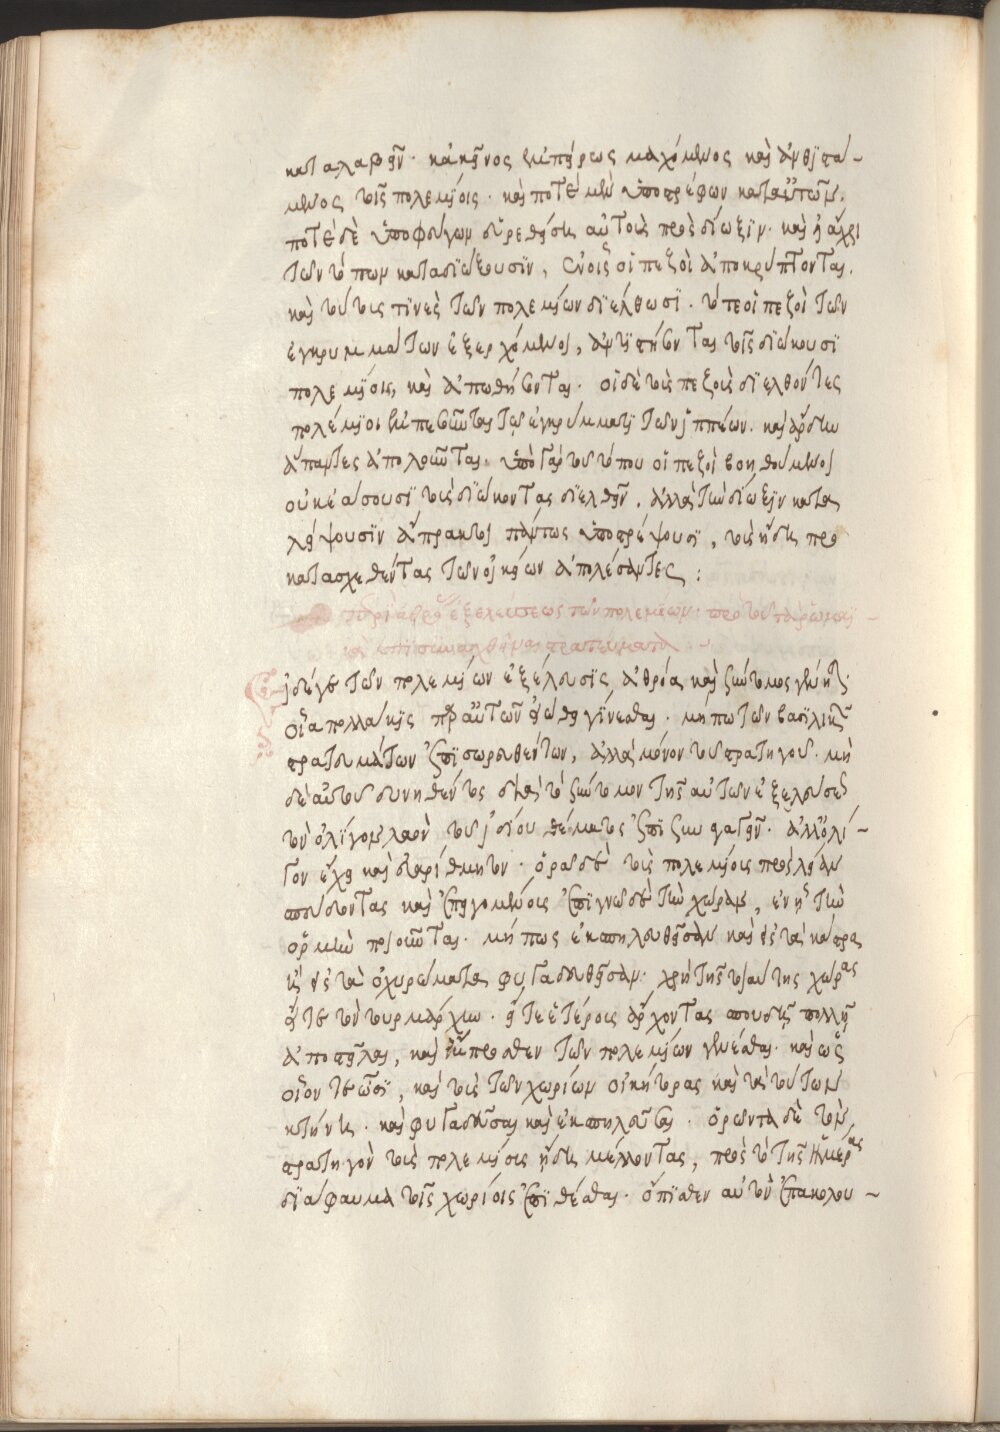 καταλαβεῖν. κἀκεῖνος ἐμπείρως μαχόμενος καὶ ἀνθιστά-
μενος τοῖς πολεμίοις. καὶ ποτὲ μὲν ὑποστρέφων κατ' αὐτῶν,
ποτὲ δὲ ὑποφεύγων εὐρεθήσει αὐτοὺς πρὸς δίωξιν. καὶ εἰ ἄχρι
τῶν τόπων καταδιώξουσιν, ἐν οἷς οἱ πεζοὶ ἀποκρύπτονται,
καὶ τούτους τινὲς τῶν πολεμίων διέλθωσι. τότε οἱ πεζοὶ τῶν
ἐγκρυμμάτων ἐξερχόμενοι, ἀντιστήσονται τοῖς διώκουσι
πολεμίοις, καὶ ἀπωθήσονται. οἱ δὲ τοὺς πεζοὺς διελθόντες
πολέμιοι ἐμπεσοῦνται τῷ ἐγκρύμματι τῶν ἱππέων. καὶ ἄρδην
ἅπαντες ἀπολοῦνται. ὑπὸ γὰρ τοῦ τόπου οἱ πεζοὶ βοηθούμενοι
οὐκ ἐάσουσι τοὺς διώκοντας διελθεῖν. ἀλλὰ τὴν δίωξιν κατα
λήψουσιν ἄπρακτοι πάντως ὑποστρέψουσι, τοὺς ἤδη προ
κατασχεθέντας τῶν οἰκείων ἀπολέσαντες:
ἐξελεύσεως τῶν πολεμίων: πρὸ τοῦ τὰ ῥωμαϊ-
κὰ ἐπισυναχθῆναι στρατεύματα. -
εἰ δέ γε τῶν πολεμίων ἐξέλευσις, ἀθρόα καὶ σύντομος γένηται.
οἷα πολλάκις παρ' αὐτῶν εἴωθε γίνεσθαι. μήπω τῶν βασιλικῶν
στρατευμάτων ἐπισωρευθέντων, ἀλλὰ μόνον τοῦ στρατηγοῦ. μὴ
δὲ αὐτοῦ δυνηθέντος διὰ τὸ σύντομον τῆς αὐτῶν ἐξελεύσεως
τὸν ὀλίγον λαὸν τοῦ ἰδίου θέματος ἐπισυναγαγεῖν. ἀλλ' ὀλί-
γον ἔχει καὶ εὐαρίθμητον. ὁρᾷ δὲ τοὺς πολεμίους πρὸς λείαν
σπεύδοντας καὶ ἐπειγομένους ἐπιγνῶ δὲ τὴν χώραν, ἐν ᾗ τὴν
ὁρμὴν ποιοῦνται. μή πως ἐκσπηλευθῆσαν καὶ εἰς τὰ κάστρα
ἢ εἰς τὰ ὀχυρώματα φυγαδευθῆσαν. χρὴ τῆς τοιαύτης χώρας
ἢ τὸν τουρμάρχην. ἢ ἑτέρους ἄρχοντας σπουδῇ πολλῇ
ἀποστεῖλαι, καὶ ἔμπροσθεν τῶν πολεμίων γενέσθαι. καὶ ὡς
οἷόν τέ ἐστι, καὶ τοὺς τῶν χωρίων οἰκήτορας καὶ τὰ τούτων
κτήνη. καὶ φυγαδεῦσαι καὶ ἐκσπηλεῦσαι. ὁρῶντα δὲ τὸν
στρατηγὸν τοὺς πολεμίους ἤδη μέλλοντας, πρὸς τὸ τῆς ἡμέρας
διάφαυμα τοῖς χωρίοις ἐπιθέσθαι. ὄπισθεν αὐτὸν ἐπακολου-